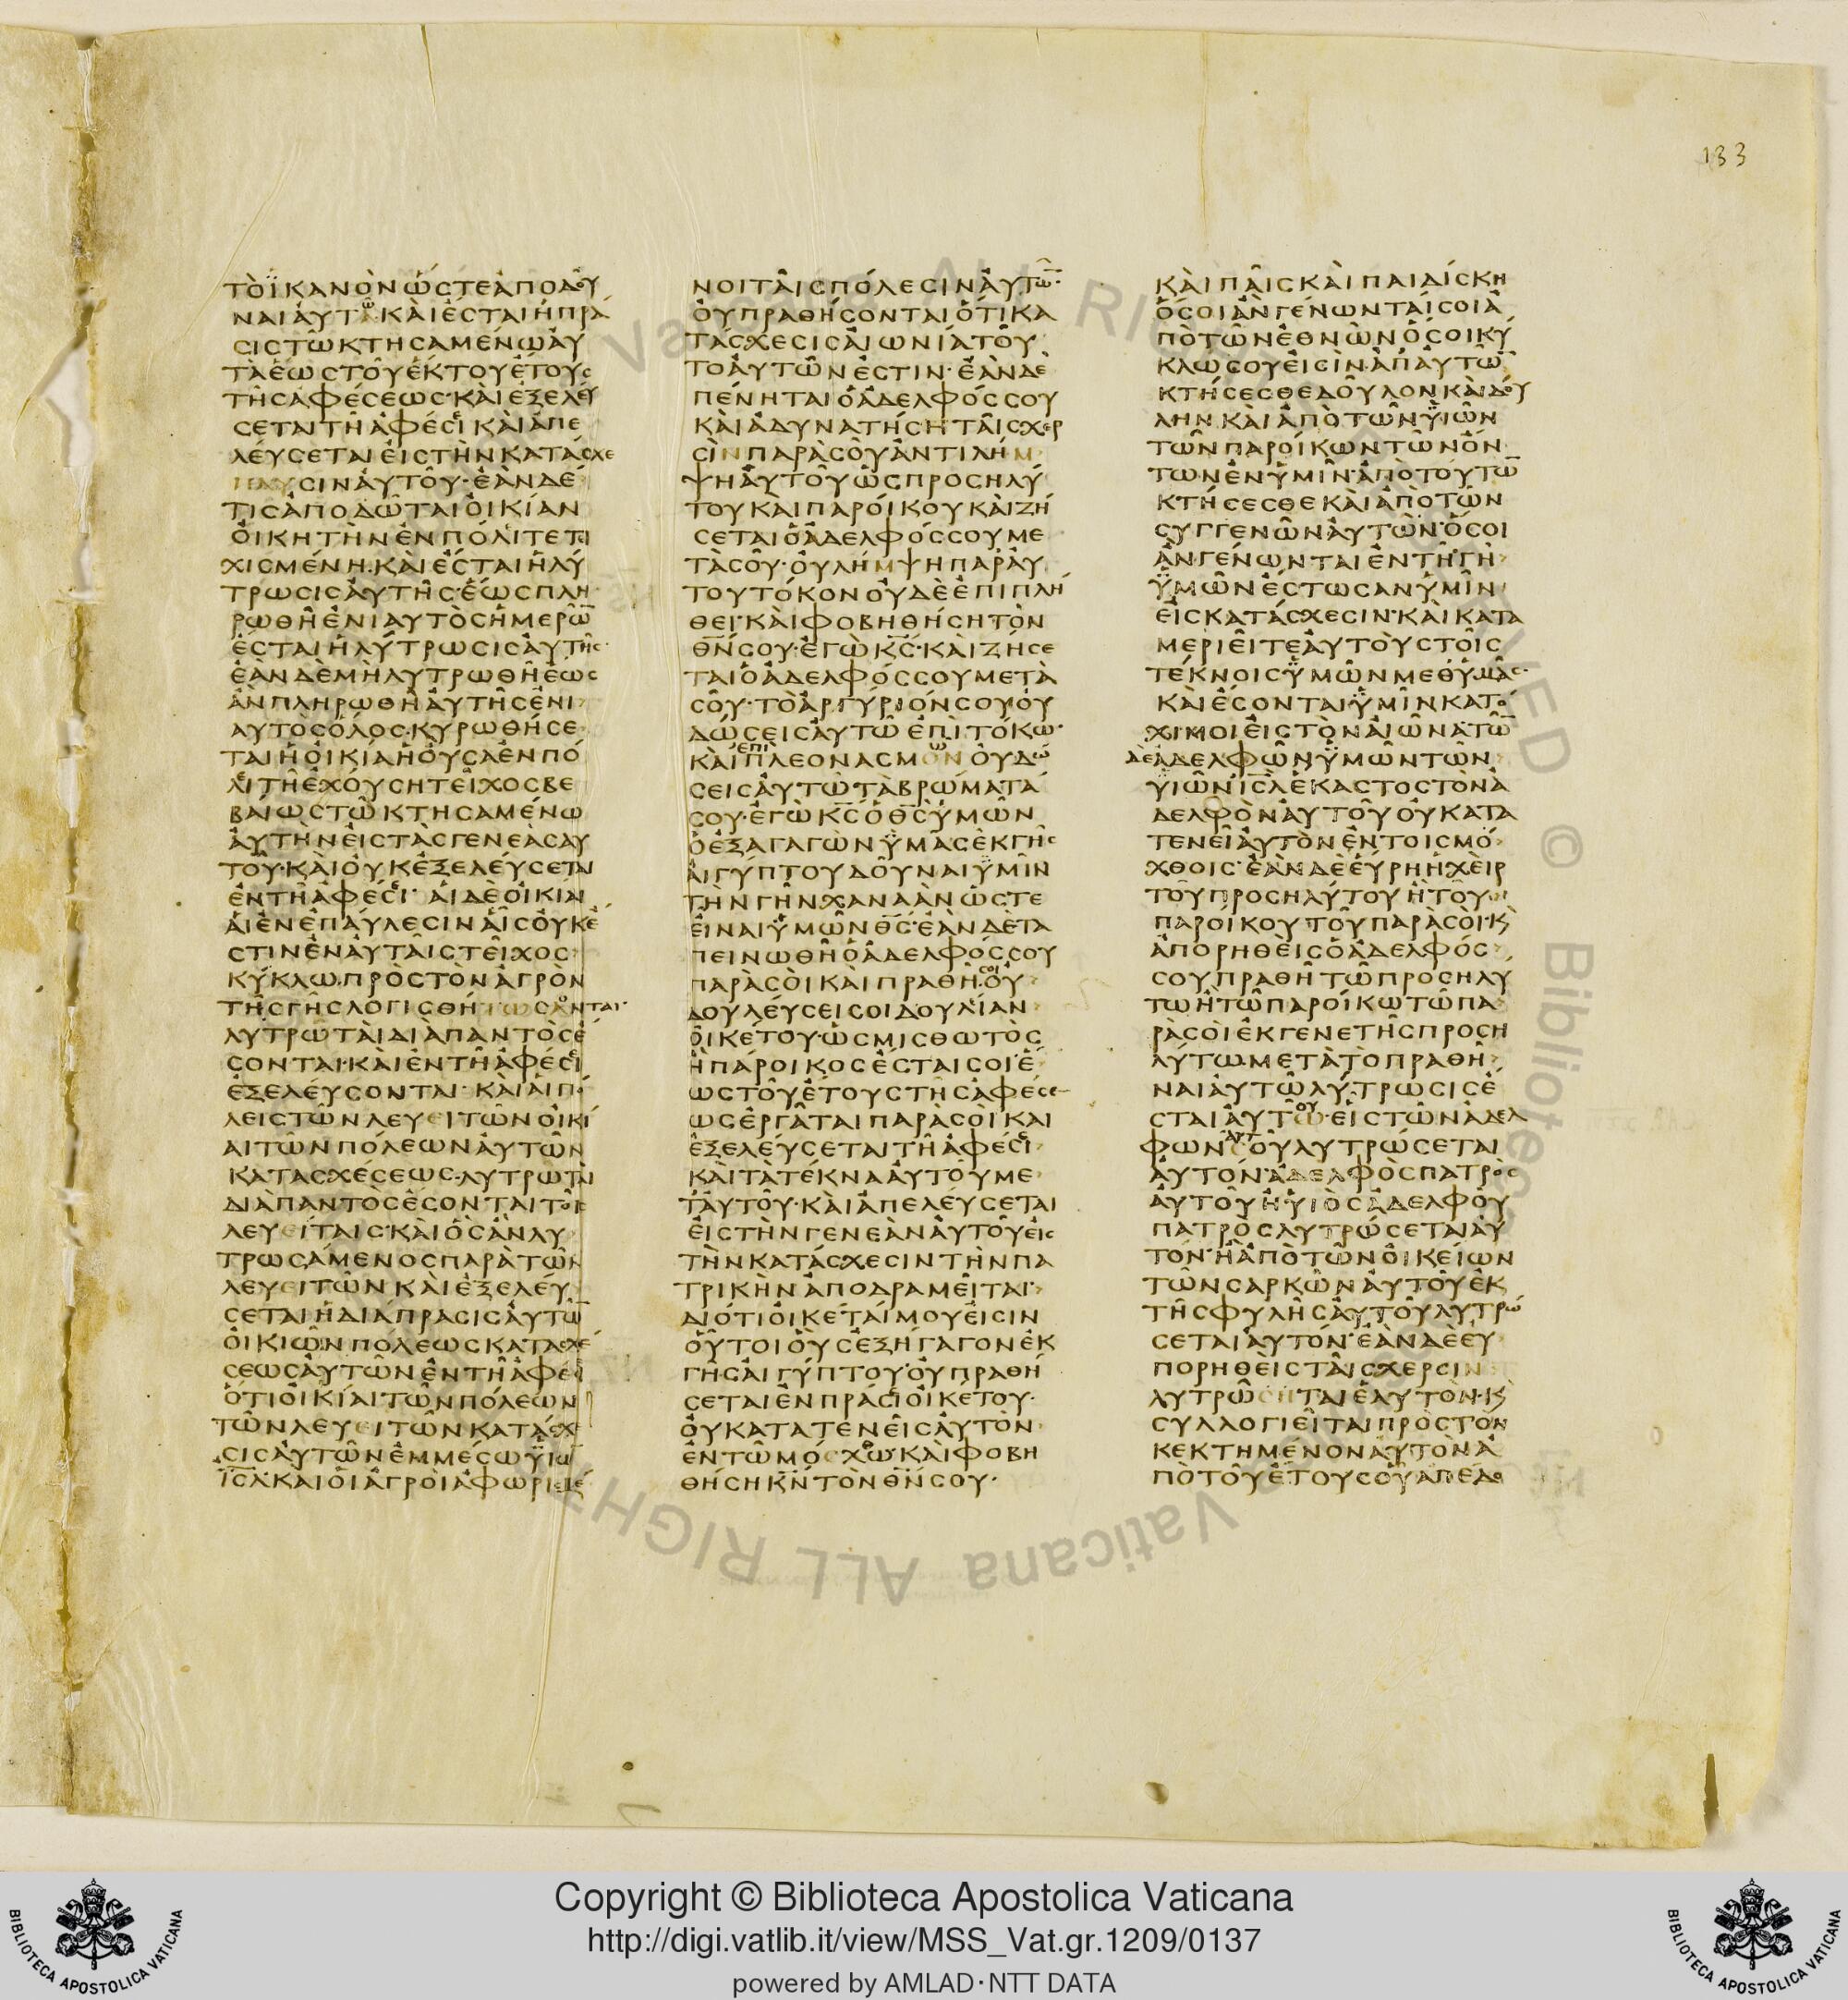 133
ΤΟΪΚΑΝΟΝΩϹΤΕΑΠΟΔΟΥ
ΝΑΙΑΥΤΩ·ΚΑΙΕϹΤΑΙΗΠΡΑ
ϹΙϹΤΩΚΤΗϹΑΜΕΝΩΑΥ
ΤΑΕΩϹΤΟΥΕΚΤΟΥΕΤΟΥϹ
ΤΗϹΑΦΕϹΕΩϹ·ΚΑΙΕΞΕΛΕΥ
ϹΕΤΑΙΤΗΑΦΕϹΕΙΚΑΙΑΠΕ
ΛΕΥϹΕΤΑΙΕΙϹΤΗΝΚΑΤΑϹΧΕ
ϹΙΝΑΥΤΟΥ·ΕΑΝΔΕ
ΤΙϹΑΠΟΔΩΤΑΙΟΙΚΙΑΝ
ΟΙΚΗΤΗΝΕΝΠΟΛΙΤΕΤΙ
ΧΙϹΜΕΝΗ·ΚΑΙΕϹΤΑΙΗΛΥ
ΤΡΩϹΙϹΑΥΤΗϹ·ΕΩϹΠΛΗ
ΡΩΘΗΕΝΙΑΥΤΟϹΗΜΕΡΩ̅
ΕϹΤΑΙΗΛΥΤΡΩϹΙϹΑΥΤΗϹ·
ΕΑΝΔΕΜΗΛΥΤΡΩΘΗΕΩϹ
ΑΝΠΛΗΡΩΘΗΑΥΤΗϹΕΝΙ
ΑΥΤΟϹΟΛΟϹ·ΚΥΡΩΘΗϹΕ
ΤΑΙΗΟΙΚΙΑΗΟΥϹΑΕΝΠΟ
ΛΕΙΤΗΕΧΟΥϹΗΤΕΙΧΟϹΒΕ
ΒΑΙΩϹΤΩΚΤΗϹΑΜΕΝΩ
ΑΥΤΗΝΕΙϹΤΑϹΓΕΝΕΑϹΑΥ
ΤΟΥ·ΚΑΙΟΥΚΕΞΕΛΕΥϹΕΤΑΙ
ΕΝΤΗΑΦΕϹΕΙ·ΑΙΔΕΟΙΚΙΑΙ
ΑΙΕΝΕΠΑΥΛΕϹΙΝΑΙϹΟΥΚΕ
ϹΤΙΝΕΝΑΥΤΑΙϹΤΕΙΧΟϹ
ΚΥΚΛΩ·ΠΡΟϹΤΟΝΑΓΡΟΝ
ΤΗϹΓΗϹΛΟΓΙϹΘΗΤΩϹΑΝ
ΛΥΤΡΩΤΑΙΔΙΑΠΑΝΤΟϹΕ
ϹΟΝΤΑΙ·ΚΑΙΕΝΤΗΑΦΕϹΕΙ
ΕΞΕΛΕΥϹΟΝΤΑΙ·ΚΑΙΑΙΠΟ
ΛΕΙϹΤΩΝΛΕΥΕΙΤΩΝΟΙΚΙ
ΑΙΤΩΝΠΟΛΕΩΝΑΥΤΩΝ
ΚΑΤΑϹΧΕϹΕΩϹ·ΛΥΤΡΩΤΑΙ
ΔΙΑΠΑΝΤΟϹΕϹΟΝΤΑΙΤΟΙϹ
ΛΕΥΕΙΤΑΙϹ·ΚΑΙΟϹΑΝΛΥ
ΤΡΩϹΑΜΕΝΟϹΠΑΡΑΤΩΝ
ΛΕΥΕΙΤΩΝΚΑΙΕΞΕΛΕΥ
ϹΕΤΑΙΗΔΙΑΠΡΑϹΙϹΑΥΤΩ̅
ΟΙΚΙΩΝΠΟΛΕΩϹΚΑΤΑϹΧΕ
ϹΕΩϹΑΥΤΩΝΕΝΤΗΑΦΕϹΕΙ
ΟΤΙΟΙΚΙΑΙΤΩΝΠΟΛΕΩΝ
ΤΩΝΛΕΥΕΙΤΩΝΚΑΤΑϹΧΕ
ϹΙϹΑΥΤΩΝΕΜΜΕϹΩΫΙΩ̅
ΙϹ̅Λ̅·ΚΑΙΟΙΑΓΡΟΙΑΦΩΡΙϹΜΕ
ΝΟΙΤΑΙϹΠΟΛΕϹΙΝΑΥΤΩ̅·
ΟΥΠΡΑΘΗϹΟΝΤΑΙΟΤΙΚΑ
ΤΑϹΧΕϹΙϹΑΙΩΝΙΑΤΟΥ
ΤΟΑΥΤΩΝΕϹΤΙΝ·ΕΑΝΔΕ
ΠΕΝΗΤΑΙΟΑΔΕΛΦΟϹϹΟΥ
ΚΑΙΑΔΥΝΑΤΗϹΗΤΑΙϹΧΕΡ
ϹΙΝΠΑΡΑϹΟΥΑΝΤΙΛΗΜ
ΨΗΑΥΤΟΥΩϹΠΡΟϹΗΛΥ
ΤΟΥΚΑΙΠΑΡΟΙΚΟΥΚΑΙΖΗ
ϹΕΤΑΙΟΑΔΕΛΦΟϹϹΟΥΜΕ
ΤΑϹΟΥ·ΟΥΛΗΜΨΗΠΑΡΑΥ
ΤΟΥΤΟΚΟΝΟΥΔΕΕΠΙΠΛΗ
ΘΕΙ·ΚΑΙΦΟΒΗΘΗϹΗΤΟΝ
Θ̅Ν̅ϹΟΥ·ΕΓΩΚ̅Ϲ̅·ΚΑΙΖΗϹΕ
ΤΑΙΟΑΔΕΛΦΟϹϹΟΥΜΕΤΑ
ϹΟΥ·ΤΟΑΡΓΥΡΙΟΝϹΟΥΟΥ
ΔΩϹΕΙϹΑΥΤΩΕΠΙΤΟΚΩ·
ΚΑΙΕΠΙΠΛΕΟΝΑϹΜΩΟΥΔΩ
ϹΕΙϹΑΥΤΩΤΑΒΡΩΜΑΤΑ
ϹΟΥ·ΕΓΩΚ̅Ϲ̅ΟΘ̅Ϲ̅ΥΜΩΝ
ΟΕΞΑΓΑΓΩΝΫΜΑϹΕΚΓΗϹ
ΑΙΓΥΠΤΟΥΔΟΥΝΑΙΫΜΙΝ
ΤΗΝΓΗΝΧΑΝΑΑΝΩϹΤΕ
ΕΙΝΑΙΫΜΩΝΘ̅Ϲ̅·ΕΑΝΔΕΤΑ
ΠΕΙΝΩΘΗΟΑΔΕΛΦΟϹϹΟΥ
ΠΑΡΑϹΟΙΚΑΙΠΡΑΘΗϹΟΙΟΥ
ΔΟΥΛΕΥϹΕΙϹΟΙΔΟΥΛΕΙΑΝ
ΟΙΚΕΤΟΥ·ΩϹΜΙϹΘΩΤΟϹ
ΗΠΑΡΟΙΚΟϹΕϹΤΑΙϹΟΙ·Ε
ΩϹΤΟΥΕΤΟΥϹΤΗϹΑΦΕϹΕ
ΩϹΕΡΓΑΤΑΙΠΑΡΑϹΟΙΚΑΙ
ΕΞΕΛΕΥϹΕΤΑΙΤΗΑΦΕϹΕΙ
ΚΑΙΤΑΤΕΚΝΑΑΥΤΟΥΜΕ
ΤΑΥΤΟΥ·ΚΑΙΑΠΕΛΕΥϹΕΤΑΙ
ΕΙϹΤΗΝΓΕΝΕΑΝΑΥΤΟΥΕΙϹ
ΤΗΝΚΑΤΑϹΧΕϹΙΝΤΗΝΠΑ
ΤΡΙΚΗΝΑΠΟΔΡΑΜΕΙΤΑΙ·
ΔΙΟΤΙΟΙΚΕΤΑΙΜΟΥΕΙϹΙΝ
ΟΥΤΟΙΟΥϹΕΞΗΓΑΓΟΝΕΚ
ΓΗϹΑΙΓΥΠΤΟΥ·ΟΥΠΡΑΘΗ
ϹΕΤΑΙΕΝΠΡΑϹΕΙΟΙΚΕΤΟΥ·
ΟΥΚΑΤΑΤΕΝΕΙϹΑΥΤΟΝ
ΕΝΤΩΜΟΧΘΩ·ΚΑΙΦΟΒΗ
ΘΗϹΗΚ̅Ν̅ΤΟΝΘ̅Ν̅ϹΟΥ·
ΚΑΙΠΑΙϹΚΑΙΠΑΙΔΙϹΚΗ
ΟϹΟΙΑΝΓΕΝΩΝΤΑΙϹΟΙΑ
ΠΟΤΩΝΕΘΝΩΝΟϹΟΙΚΥ
ΚΛΩϹΟΥΕΙϹΙΝ·ΑΠΑΥΤΩ̅
ΚΤΗϹΕϹΘΕΔΟΥΛΟΝΚΑΙΔΟΥ
ΛΗΝ·ΚΑΙΑΠΟΤΩΝΫΙΩΝ
ΤΩΝΠΑΡΟΙΚΩΝΤΩΝΟΝ
ΤΩΝΕΝΫΜΙΝ·ΑΠΟΤΟΥΤΩ̅
ΚΤΗϹΕϹΘΕΚΑΙΑΠΟΤΩΝ
ϹΥΓΓΕΝΩΝΑΥΤΩΝ·ΟϹΟΙ
ΑΝΓΕΝΩΝΤΑΙΕΝΤΗΓΗ
ΫΜΩΝΕϹΤΩϹΑΝΫΜΙΝ
ΕΙϹΚΑΤΑϹΧΕϹΙΝ·ΚΑΙΚΑΤΑ
ΜΕΡΙΕΙΤΕΑΥΤΟΥϹΤΟΙϹ
ΤΕΚΝΟΙϹΫΜΩΝΜΕΘΫΜΑϹ·
ΚΑΙΕϹΟΝΤΑΙΫΜΙΝΚΑΤΟ
ΧΙΜΟΙΕΙϹΤΟΝΑΙΩΝΑ·ΤΩ̅
ΔΕΑΔΕΛΦΩΝΫΜΩΝΤΩΝ
ΥΙΩΝΙϹ̅Λ̅ΕΚΑϹΤΟϹΤΟΝΑ
ΔΕΛΦΟΝΑΥΤΟΥΟΥΚΑΤΑ
ΤΕΝΕΙΑΥΤΟΝΕΝΤΟΙϹΜΟ
ΧΘΟΙϹ·ΕΑΝΔΕΕΥΡΗΗΧΕΙΡ
ΤΟΥΠΡΟϹΗΛΥΤΟΥΗΤΟΥ
ΠΑΡΟΙΚΟΥΤΟΥΠΑΡΑϹΟΙ·Κ
ΑΠΟΡΗΘΕΙϹΟΑΔΕΛΦΟϹ
ϹΟΥΠΡΑΘΗΤΩΠΡΟϹΗΛΥ
ΤΩΗΤΩΠΑΡΟΙΚΩΤΩΠΑ
ΡΑϹΟΙΕΚΓΕΝΕΤΗϹΠΡΟϹΗ
ΛΥΤΩ·ΜΕΤΑΤΟΠΡΑΘΗ
ΝΑΙΑΥΤΩΛΥΤΡΩϹΙϹΕ
ϹΤΑΙΑΥΤΟΥ·ΕΙϹΤΩΝΑΔΕΛ
ΦΩΝΑΥΤΟΥΛΥΤΡΩϹΕΤΑΙ
ΑΥΤΟΝ·ΑΔΕΛΦΟϹΠΑΤΡΟϹ
ΑΥΤΟΥΗΥΙΟϹΑΔΕΛΦΟΥ
ΠΑΤΡΟϹΛΥΤΡΩϹΕΤΑΙΑΥ
ΤΟΝ·ΗΑΠΟΤΩΝΟΙΚΕΙΩΝ
ΤΩΝϹΑΡΚΩΝΑΥΤΟΥΕΚ
ΤΗϹΦΥΛΗϹΑΥΤΟΥΛΥΤΡΩ
ϹΕΤΑΙΑΥΤΟΝ·ΕΑΝΔΕΕΥ
ΠΟΡΗΘΕΙϹΤΑΙϹΧΕΡϹΙΝ
ΛΥΤΡΩϹΗΤΑΙΕΑΥΤΟΝ·Κ
ϹΥΛΛΟΓΙΕΙΤΑΙΠΡΟϹΤΟΝ
ΚΕΚΤΗΜΕΝΟΝΑΥΤΟΝΑ
ΠΟΤΟΥΕΤΟΥϹΟΥΑΠΕΔΟ
Copyright © Biblioteca Apostolica Vaticana
http://digi.vatlib.it/view/MSS_Vat.gr.1209/0137
powered by AMLAD·NTT DATA
BIBLIOTECA APOSTOLICA VATICANA
BIBLIOTECA APOSTOLICA VATICANA